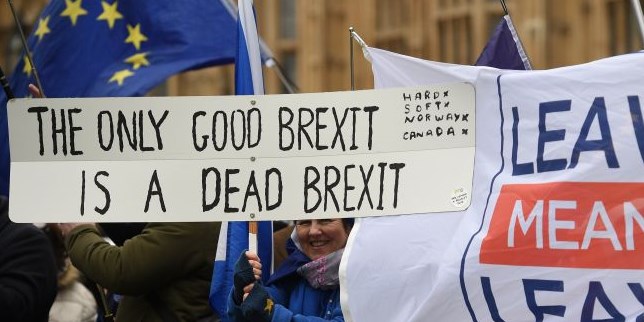 THE ONLY GOOD BREXIT
IS A DEAD BREXIT
HARD x
SOFT x
NORWAY x
CANADA x
LEAV
MEAN
LEAV